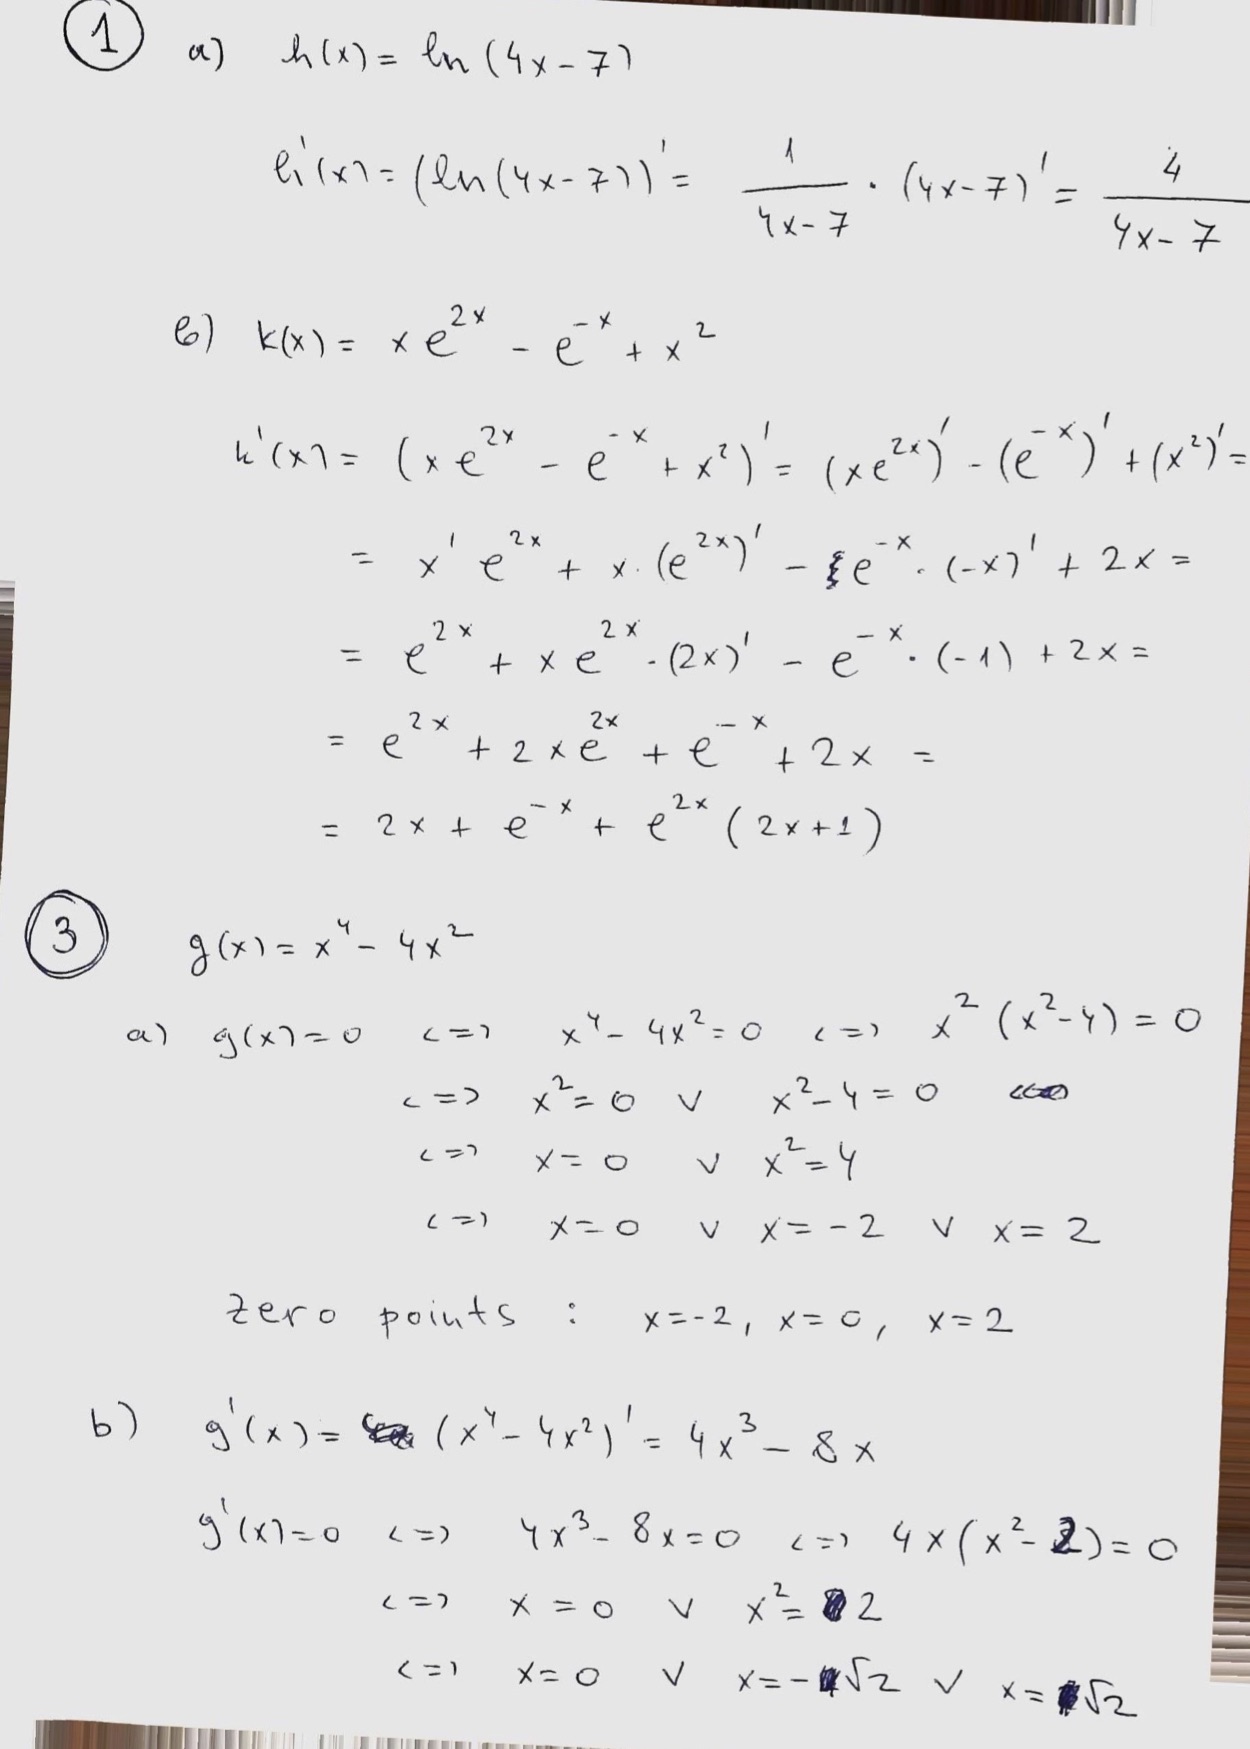 ① a) h(x) = ln (4x - 7)
h'(x) = (ln(4x-7))' = 1/(4x-7) · (4x-7)' = 4/(4x-7)
b) k(x) = x e^(2x) - e^(-x) + x^2
k'(x) = (x e^(2x) - e^(-x) + x^2)' = (x e^(2x))' - (e^(-x))' + (x^2)' =
= x' e^(2x) + x · (e^(2x))' - e^(-x) · (-x)' + 2x =
= e^(2x) + x e^(2x) · (2x)' - e^(-x) · (-1) + 2x =
= e^(2x) + 2x e^(2x) + e^(-x) + 2x =
= 2x + e^(-x) + e^(2x) (2x+1)
③ g(x) = x^4 - 4x^2
a) g(x) = 0 <=> x^4 - 4x^2 = 0 <=> x^2 (x^2-4) = 0
<=> x^2 = 0 ∨ x^2 - 4 = 0
<=> x = 0 ∨ x^2 = 4
<=> x = 0 ∨ x = -2 ∨ x = 2
zero points : x = -2, x = 0, x = 2
b) g'(x) = (x^4 - 4x^2)' = 4x^3 - 8x
g'(x) = 0 <=> 4x^3 - 8x = 0 <=> 4x(x^2 - 2) = 0
<=> x = 0 ∨ x^2 = 2
<=> x = 0 ∨ x = -√2 ∨ x = √2